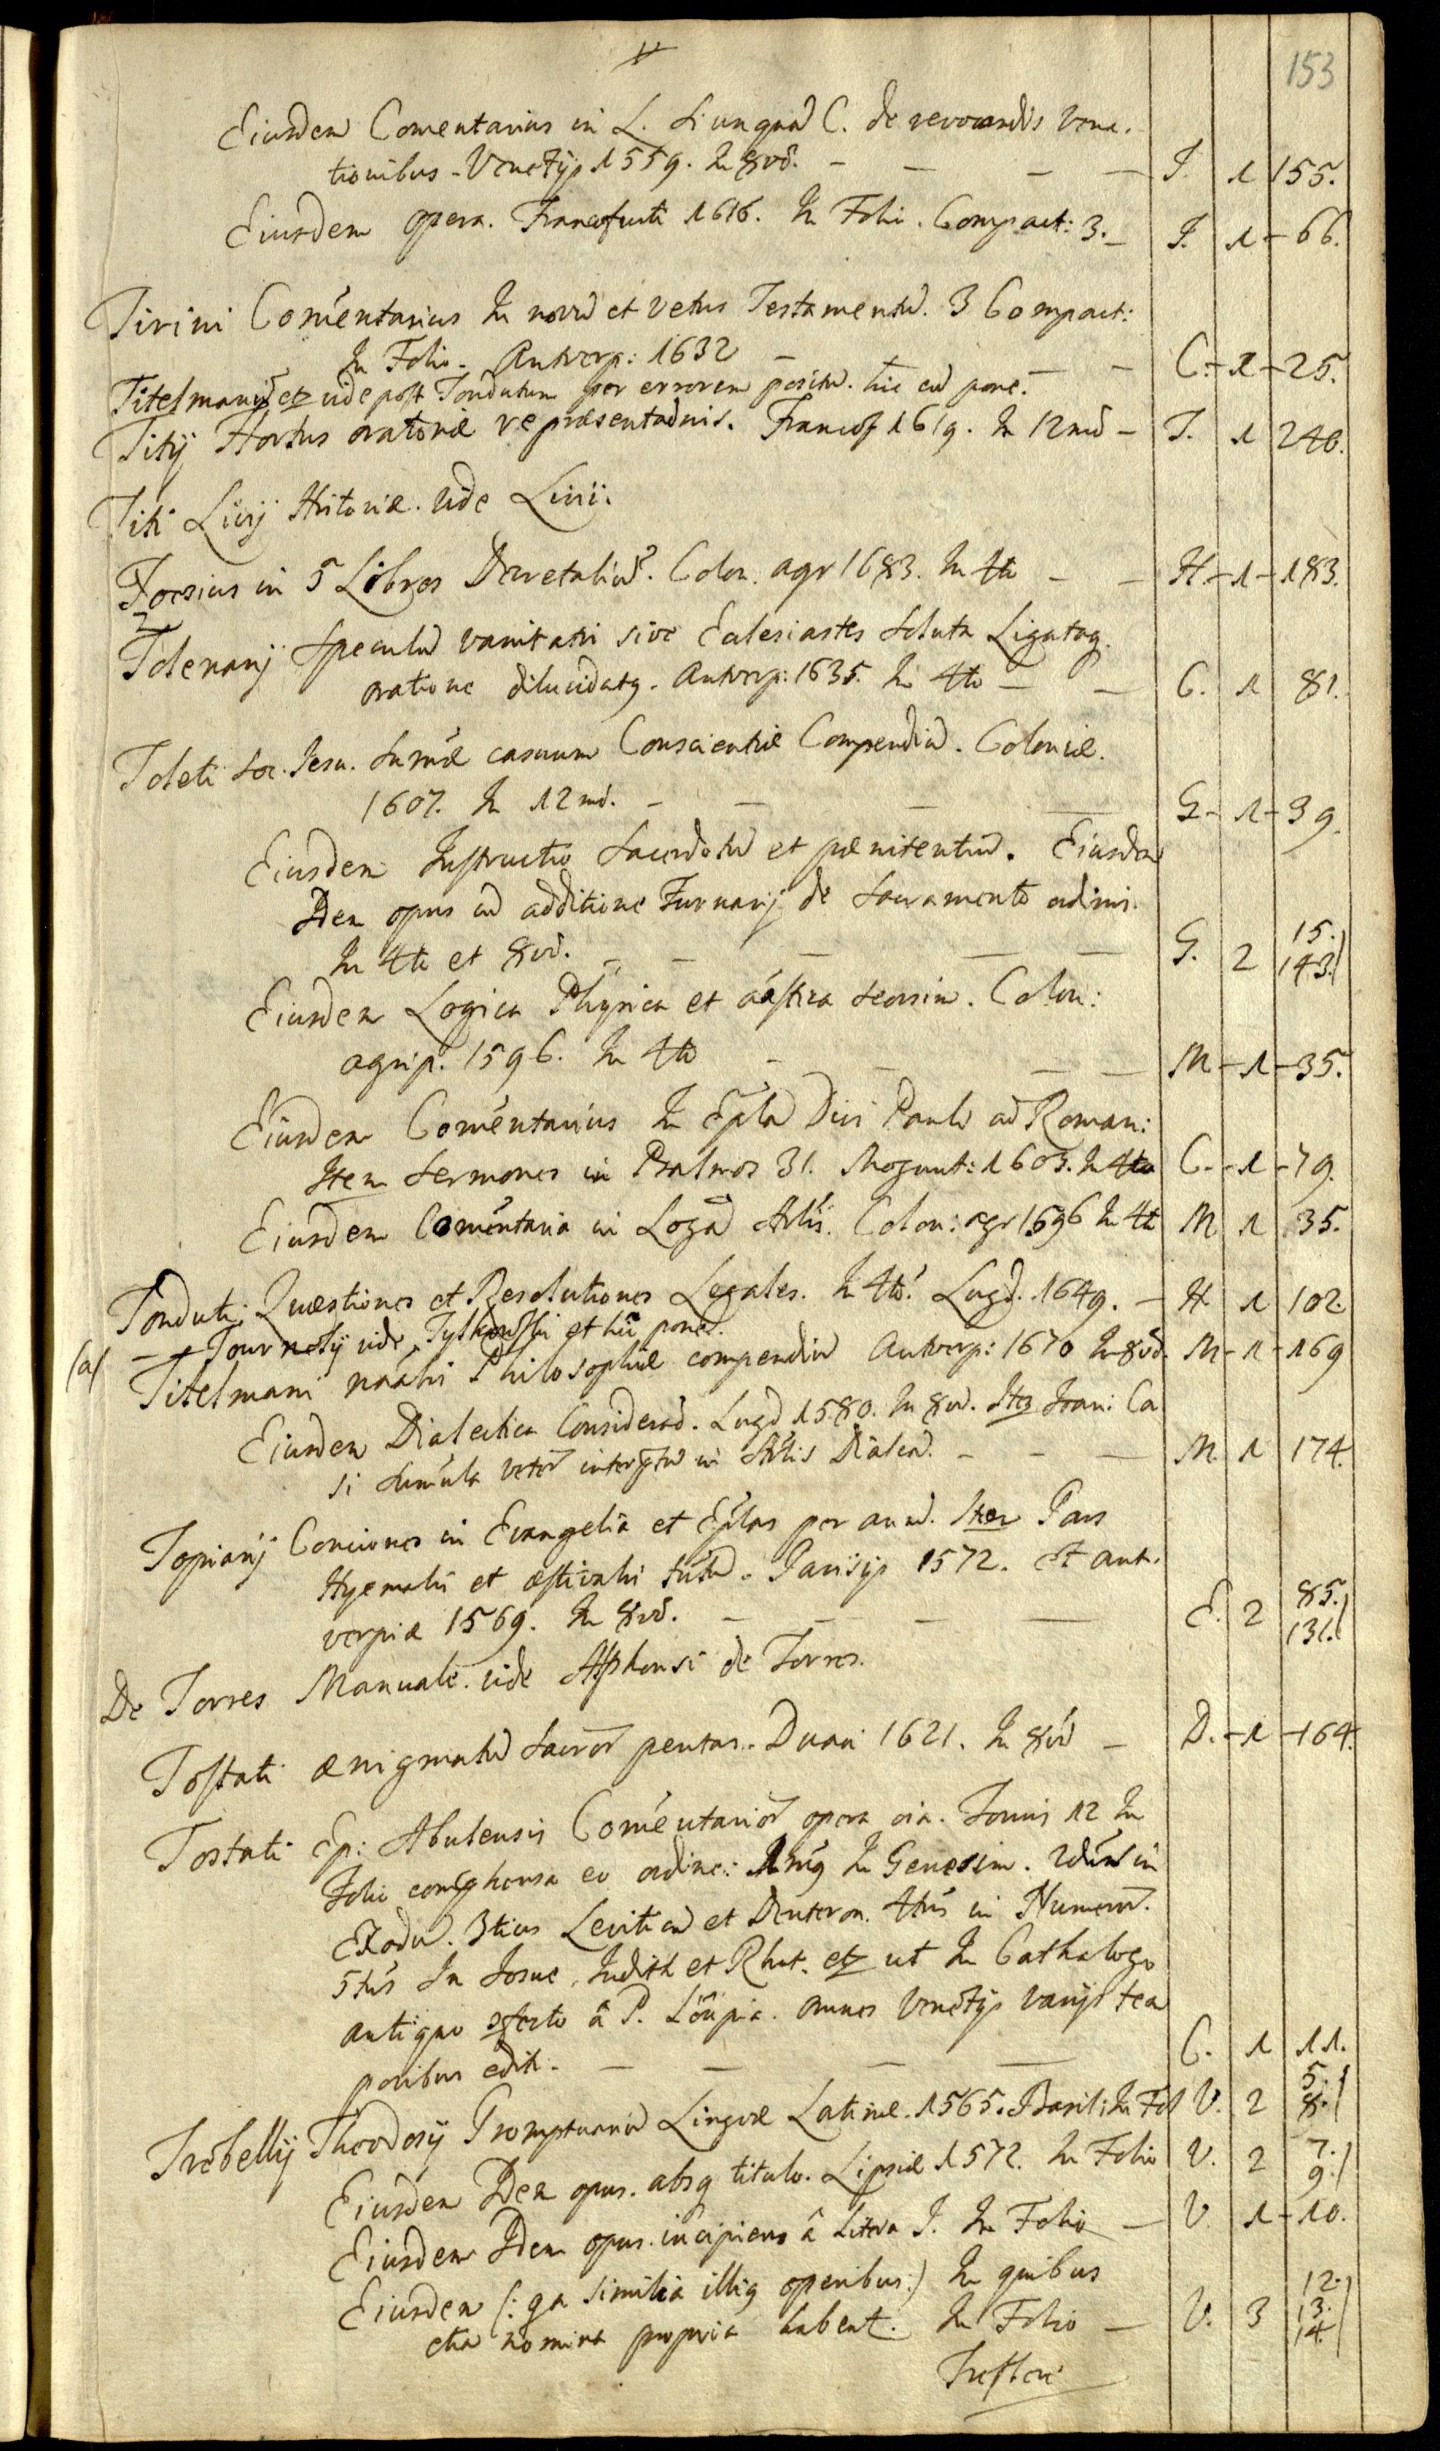 153
Eiusdem Comentarius in L. Si unquam C. de revocandis Dona-
tionibus. Venetijs 1559. In 8vo. — — — — J. 1 155.
Eiusdem opera. Francofurti 1616. In Folio. Compact: 3. — J. 1 - 66.
Tirini Comentarius In novu et vetus Testamentu. 3 Compact:
In Folio. Antverp: 1632 — — — C. - 1 - 25.
Titelmanus etc vide post Tondutum per errorem positu. hic eu pone.
Titij Hortus oratoriæ repræsentaonis. Francof 1619. In 12mo — T. 1 240.
Titi Livij Historiæ. vide Livii.
Toesius in 5 Libros Decretaliu. Colon. agr 1683. In 4to — — H - 1 - 183.
Tolenarij Speculu vanitatis sive Eclesiastes Soluta Ligataq
oratione dilucidatq. Antverp: 1635. In 4to — — C. 1 81.
Toleti Soc. Jesu. Sumæ casuum Conscientiæ Compendiu. Coloniæ.
1607. In 12mo. — — — — G - 1 - 39.
Eiusdem Instructio Sacerdotu et pænitentiu. Eiusdem
Idem opus cu additione Furnarij de Sacramento ordinis.
In 4to et 8vo. — — — — — G. 2 15. 143.
Eiusdem Logica Physica et aastica seorsim. Colon:
agrip. 1596. In 4to — — — — M - 1 - 35.
Eiusdem Comentarius In Epla Divi Pauli ad Roman:
Item Sermones in Psalmos 31. Mogunt: 1603. In 4to C. - 1 - 79.
Eiusdem Comentaria in Loga Arlis. Colon: agr 1596 In 4to M 1 35.
Tonduti Quæstiones et Resolutiones Legales. In 4to. Lugd. 1649. — H 1 102.
(a) — Tournelij vide Tylkowski et hic pones.
Titelmani naalis Philosophiæ compendiu Antverp: 1670 In 8vo. M - 1 - 169
Eiusdem Dialectica Considerao. Lugd 1580. In 8vo. Item Joan: Ca
si Sumula veteru interptu in Arlis Dialeca. — — — M. 1 174.
Topiarij Conciones in Evangelia et Eplas per annu. Item Pars
Hyemalis et æstivalis tntu. Parisijs 1572. Et ant-
verpiæ 1569. In 8vo. — — — — E. 2 85. 131.
De Torres Manuale. vide Alphonsi de Torres.
Tostati ænigmatu Sacror pentas. Duaci 1621. In 8vo — D. - 1 - 164.
Tostati Ep: Abulensis Comentarior opera oia. Tomis 12 In
Folio comphensa eo ordine: 1mus In Genesim. 2dus in
Exodu. 3tius Leviticu et Deuteron. 4tus in Numeror.
5tus In Josue, Judith et Rhut. etc ut In Cathalogo
antiquo confecto â P. Loupia. omnes Venetijs varijs tem
poribus editi. — — — — C. 1 11.
Trebellij Theodosij Promptuariu Linguæ Latinæ. 1565. Basil: In Fol V. 2 5. 8.
Eiusdem Idem opus. absq titulo. Lipsiæ 1572. In Folio V. 2 7. 9.
Eiusdem Idem opus. incipiens â Litera J. In Folio — V. 1 - 10.
Eiusdem (: qa similia illiq operibus:) In quibus
etia nomina propria habent. In Folio — V. 3 12. 13. 14.
Tresteri